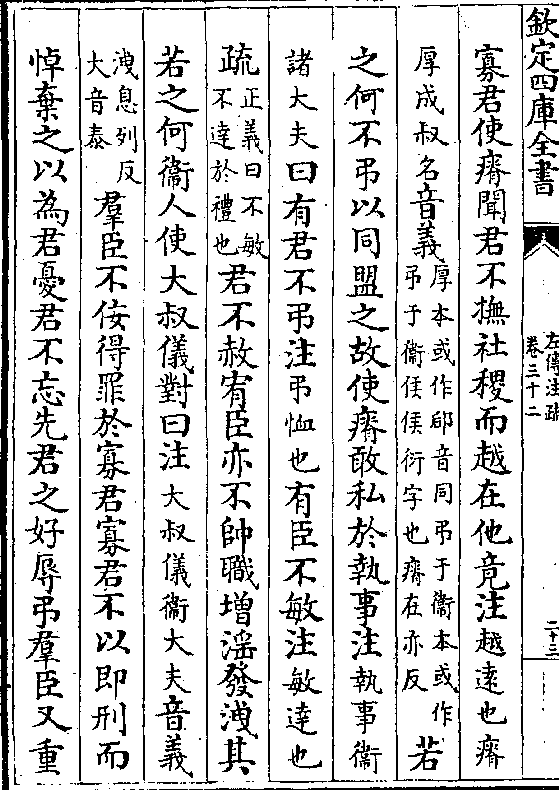 欽定四庫全書
左傳注疏
卷三十二
二十三
寡君使瘠聞君不撫社稷而越在他竟注越逺也瘠
厚成叔名音義厚本或作郈音同弔于衛本或作
弔于衛侯侯衍字也瘠在亦反若
之何不弔以同盟之故使瘠敢私於執事注執事衛
諸大夫曰有君不弔注弔恤也有臣不敏注敏逹也
疏正義曰不敏
不逹於禮也君不赦宥臣亦不帥職增淫發洩其
若之何衞人使大叔儀對曰注大叔儀衛大夫音義
洩息列反
大音泰羣臣不佞得罪於寡君寡君不以即刑而
悼棄之以為君憂君不忘先君之好辱弔羣臣又重